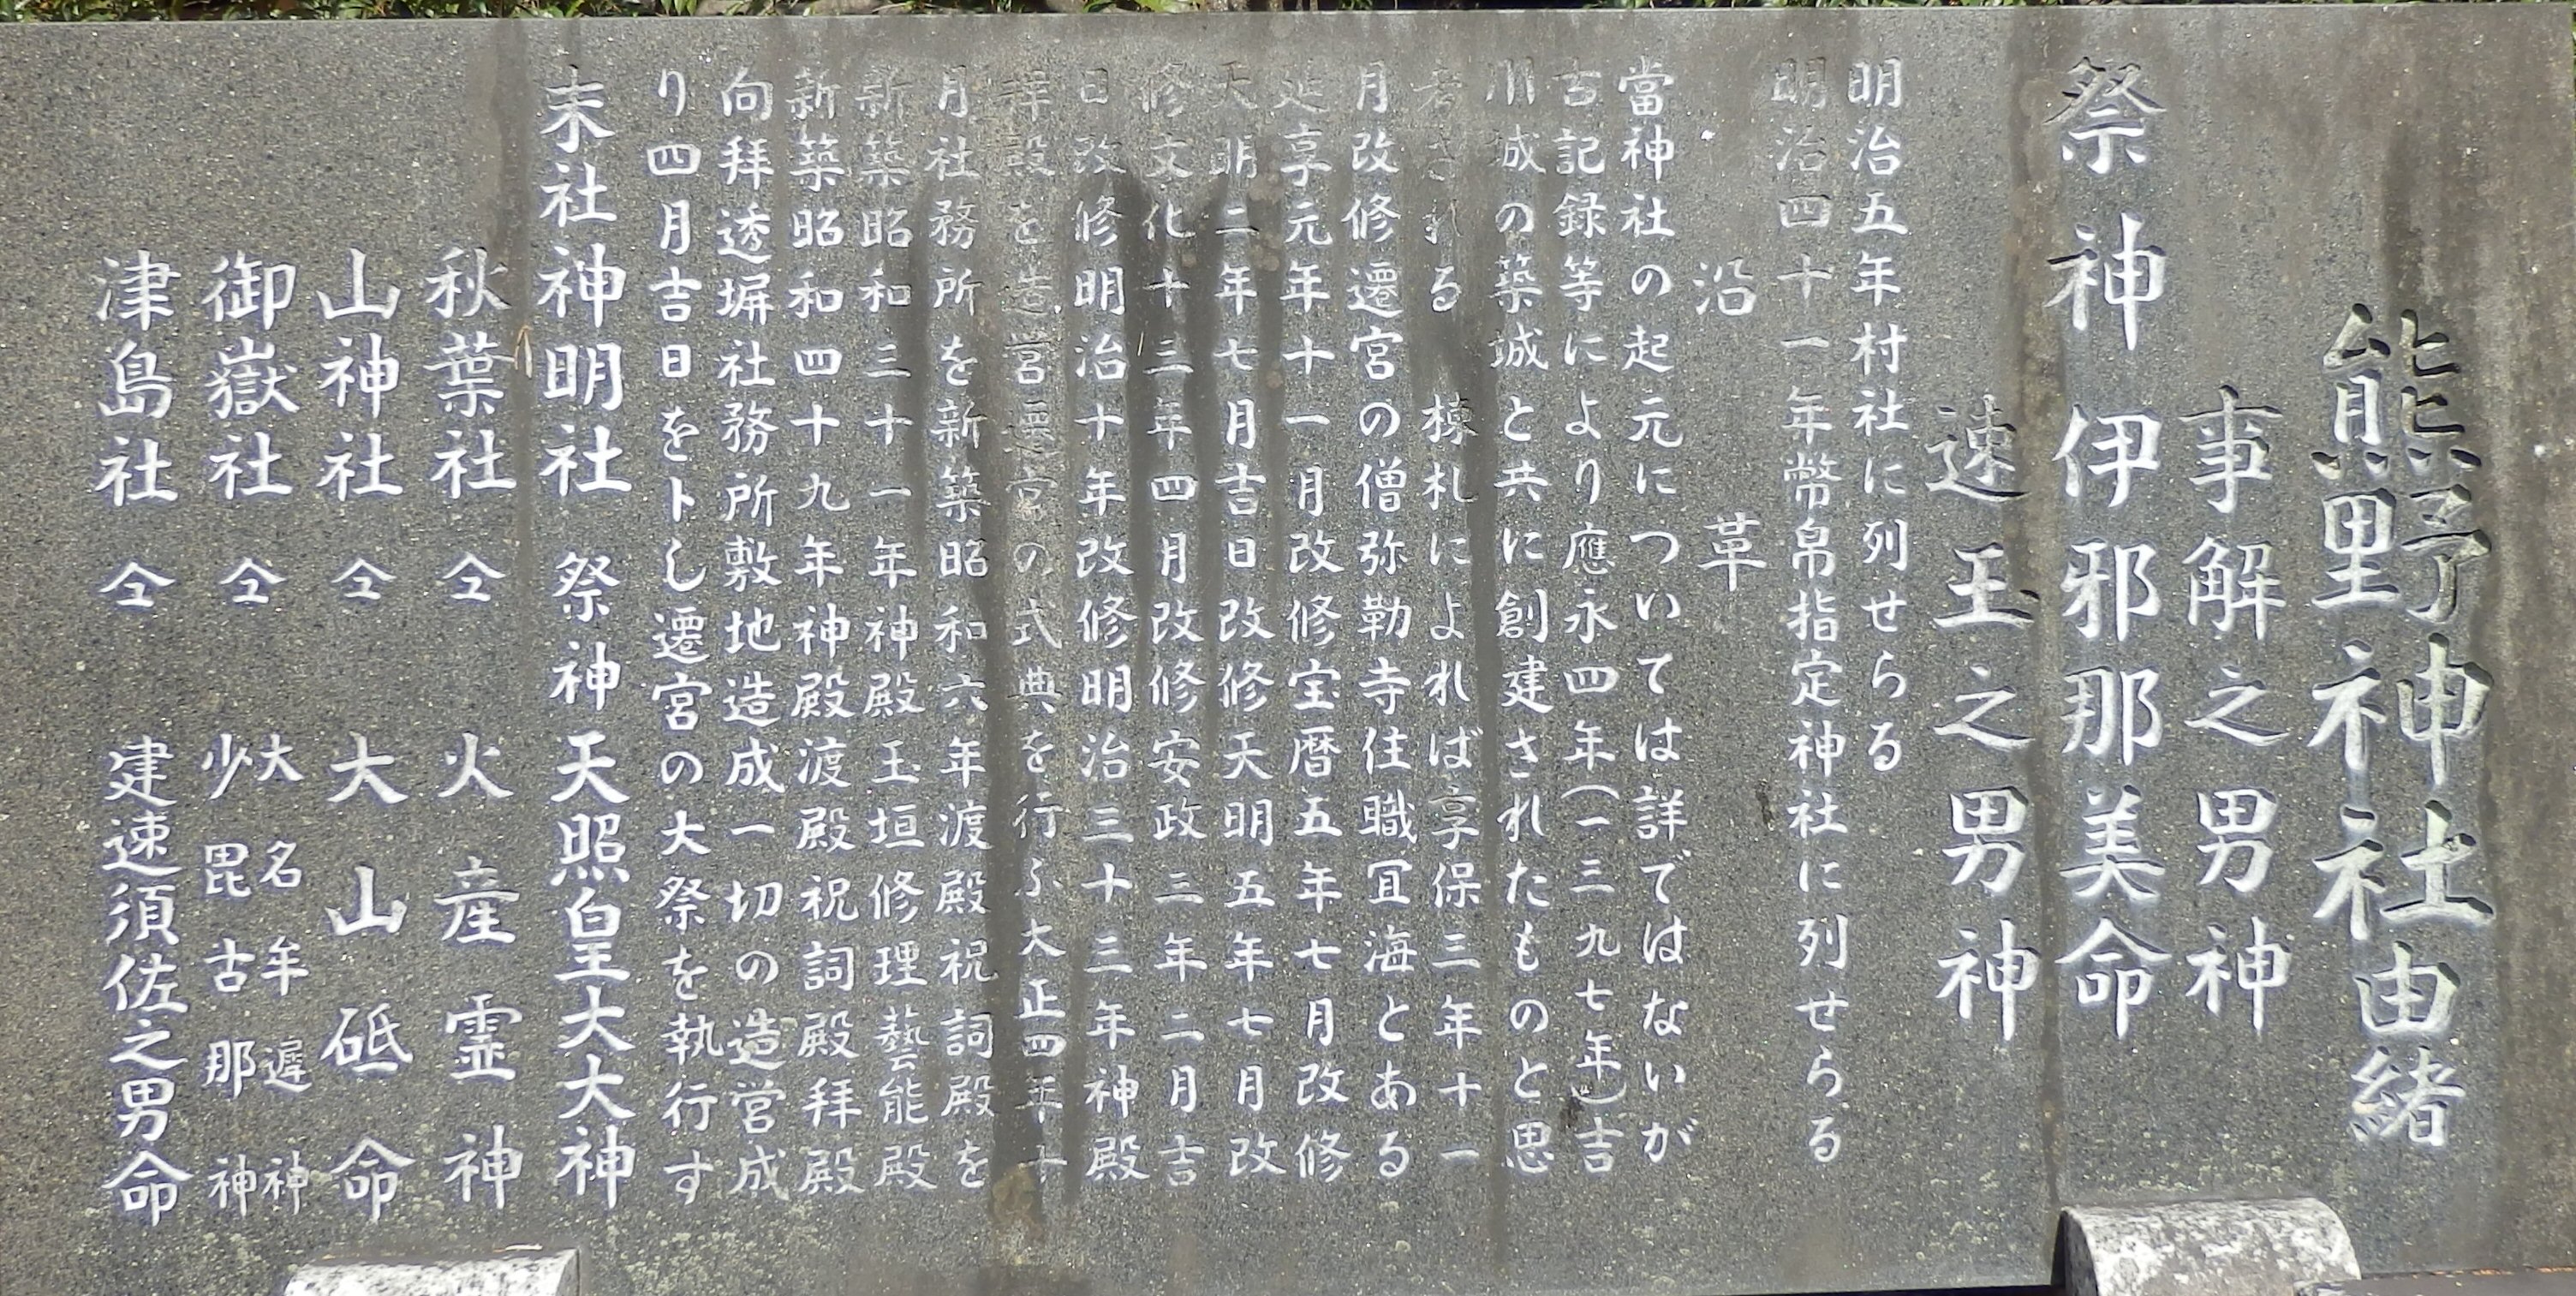 熊野神社由緒
事解之男神
祭神 伊邪那美命
速玉之男神
明治五年村社に列せらる
明治四十一年幣帛指定神社に列せらる
沿革
當神社の起元については詳ではないが
古記録等により應永四年(一三九七年)吉
川城の築城と共に創建されたものと思
考される 棟札によれば享保三年十一
月改修遷宮の僧弥勒寺住職冝海とある
延享元年十一月改修宝暦五年七月改修
天明二年七月吉日改修天明五年七月改
修文化十三年四月改修安政三年二月吉
日改修明治十年改修明治三十三年神殿
拝殿を造営遷宮の式典を行ふ大正四年十
月社務所を新築昭和六年渡殿祝詞殿を
新築昭和三十一年神殿玉垣修理藝能殿
新築昭和四十九年神殿渡殿祝詞殿拝殿
向拜透塀社務所敷地造成一切の造営成
り四月吉日を卜し遷宮の大祭を執行す
末社神明社 祭神 天照皇大大神
秋葉社 仝 火産霊神
山神社 仝 大山砥命
御嶽社 仝 大名牟遲神
少毘古那神
津島社 仝 建速須佐之男命